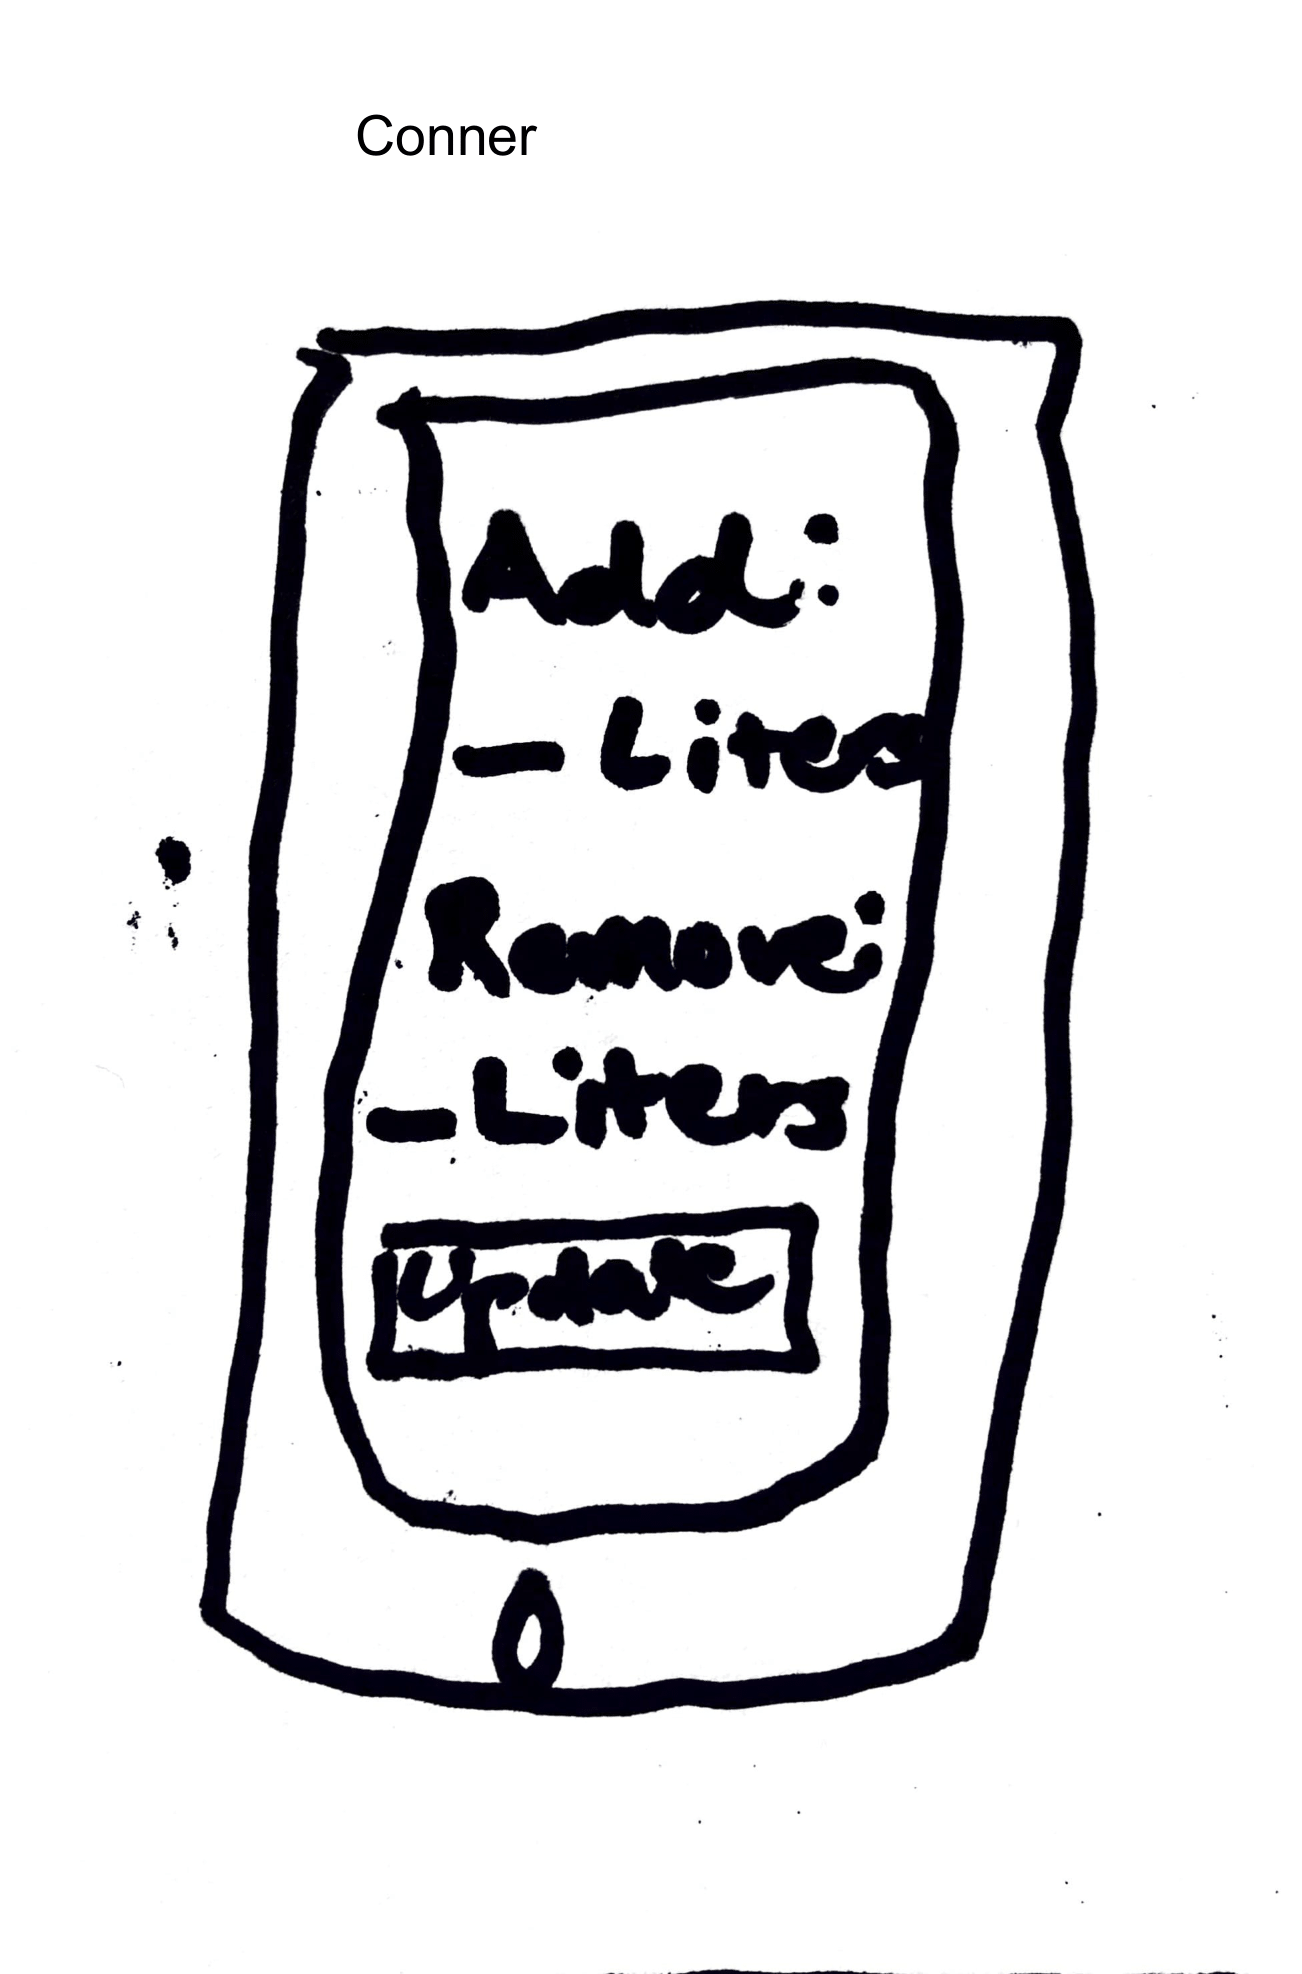 Conner
Add:
- Liters
Remove:
- Liters
Update